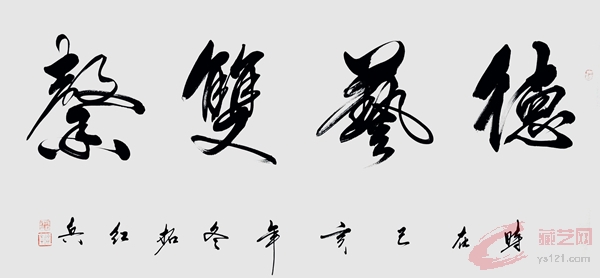 德藝雙馨
時在己亥年冬拓红兵
藏艺网
ys121.com